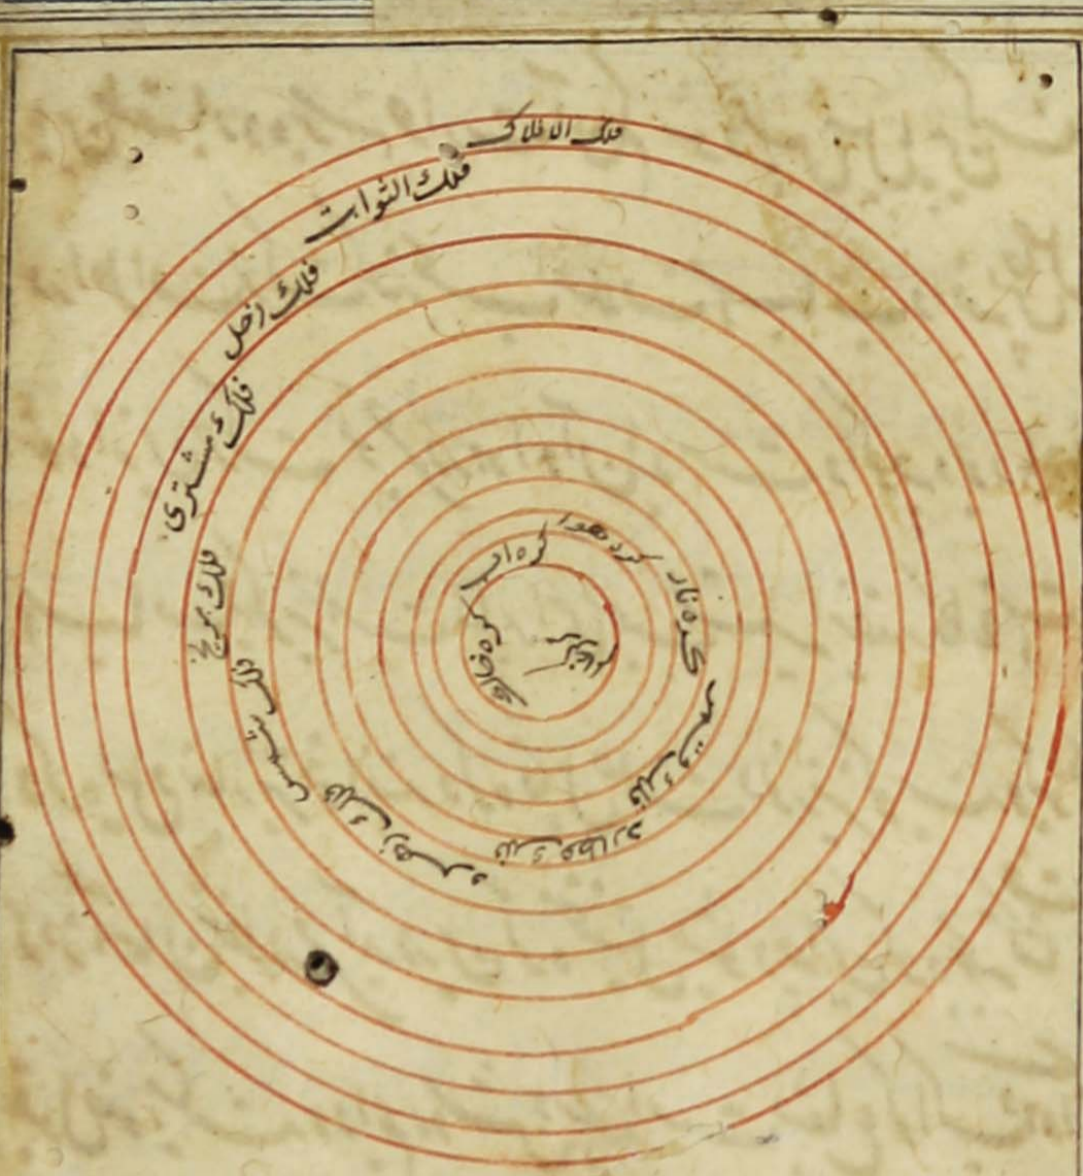 فلك الافلاك
فلك الثوابت
فلك زحل
فلك مشترى
فلك مريخ
فلك شمس
فلك زهره
فلك عطارد
فلك قمر
كره نار
كره هوا
كره اب
كره خاك